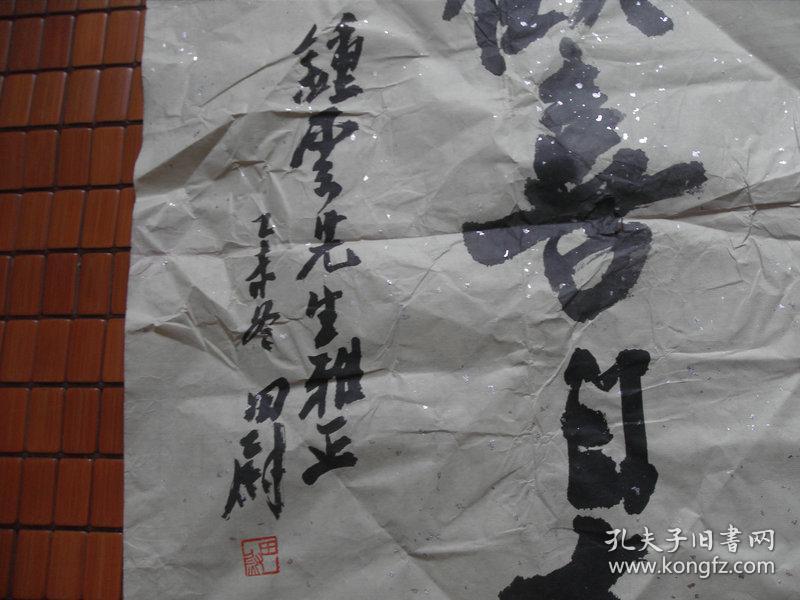 喜自
鍾雲先生雅正
乙未冬 田
孔夫子旧書网
www.kongfz.com